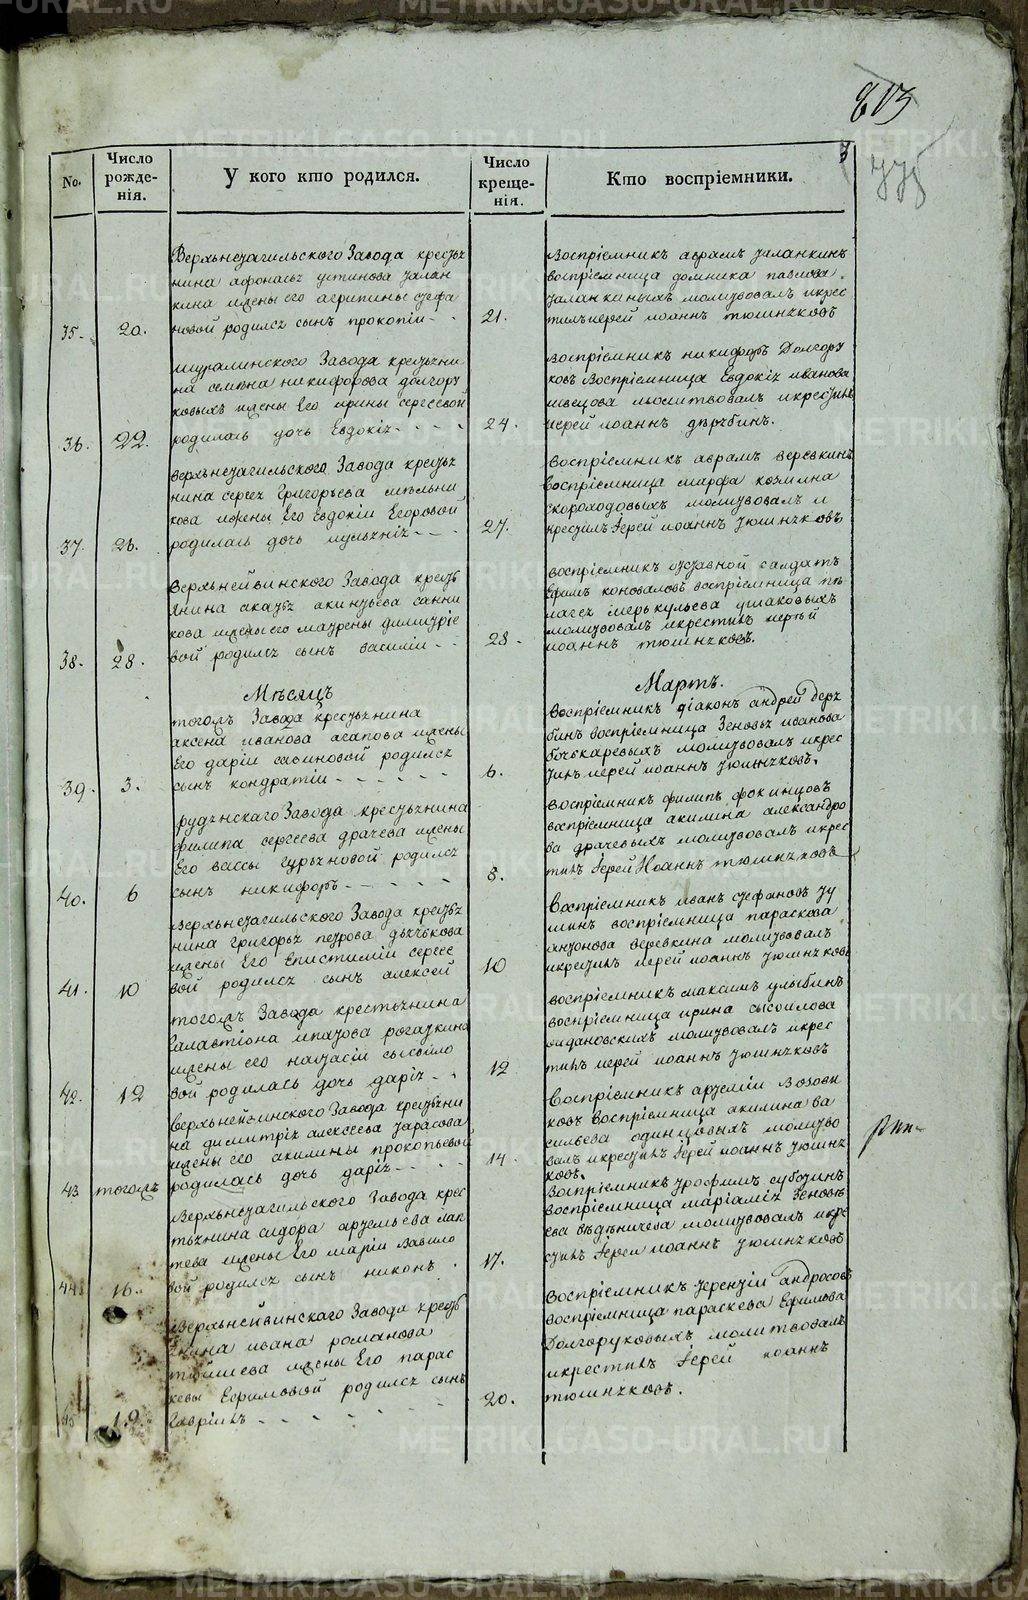 813
775
3
No.
Число рожденія.
У кого кто родился.
Число крещенія.
Кто воспріемники.
35. 20.
Верхьнетагильского Завода кресть
нина афонасья устинова галан
кина жены его агрипины стефа
новой родился сынъ прокопіи
21.
воспріемникъ аврамъ галанкинъ
воспріемница домника павлова
галанкиныхъ молитвовалъ икрес
тилъ иерей иоаннъ тюшняковъ
36. 22.
шуралинского Завода крестьяни
на семена никифорова долгору
ковыхъ жены Его ирины сергеевой
родилась дочь Евдокія
24.
воспріемникъ никифоръ Долгору
ковъ воспріемница Евдокія иванова
швецова молитвовалъ икрестилъ
иерей иоаннъ дерябинъ.
37. 26.
верхьнетагильского Завода кресть
нина сергея Григорьева мельни
кова жены Его Евдокіи Егоровой
родилась дочь иульянія
27.
воспріемникъ аврамъ веревкинъ
воспріемница марфа козмина
скороходовыхъ молитвовалъ и
крестилъ Іерей иоаннъ тюшняковъ
38. 28.
Верхьнейвинского Завода кресть
янина акакья акинтьева санни
кова жены его мавры димитріе
вой родился сынъ василіи
28.
воспріемникъ отставной салдатъ
Ефимъ коноваловъ воспріемница пе
лагея меркульева ушаковыхъ
молитвовалъ икрестилъ иерей
иоаннъ тюшняковъ.
Мѣсяцъ
Мартъ.
39. 3.
тогожъ Завода крестьянина
аксена иванова агапова жены
Его даріи савиновой родился
сынъ кондратіи
6.
Воспріемникъ діаконъ андрей деря
бинъ воспріемница Зеновья иванова
бочкаревыхъ молитвовалъ икрес
тилъ иерей иоаннъ тюшняковъ.
40. 6
рудянскаго Завода крестьянина
филипа сергеева драчева жены
Его вассы гурьяновой родился
сынъ никифоръ
8.
воспріемникъ филипъ фокинцовъ
воспріемница акилина александро
ва драчевыхъ молитвовалъ икрес
тилъ Іерей Иоаннъ тюшняковъ
41. 10
верхьнетагильского Завода кресть
нина григорья петрова дьячькова
жены Его Епистиміи сергее
вой родился сынъ алексей
10
Воспріемникъ иванъ стефановъ
воспріемница параскова
антонова веревкина молитвовалъ
икрестилъ иерей иоаннъ тюшняковъ
42. 12
тогожъ Завода крестьянина
галактіона ипатова рогаткина
жены его настасіи сысоило
вой родилась дочь дарія
12
воспріемникъ максимъ улыбинъ
воспріемница ирина сысоилова
молитвовалъ икрес
тилъ иерей иоаннъ тюшняковъ
43 тогожъ
Верхьнейвинского Завода крестьяни
на димитрія алексеева тарасова
жены его акилины прокопьевой
родилась дочь дарія
14
Воспріемникъ артеміи возови
ковъ воспріемница акилина ва
сильева одинцовыхъ молитво
валъ икрестилъ Іерей иоаннъ тюшня
ковъ.
44. 16.
Верхьнетагильского Завода крес
тьянина сидора артемьева лап
тева жены Его маріи вавило
вой родился сынъ никонъ
17.
Воспріемникъ трофимъ субботинъ
воспріемница маріамія Зеновье
ва веденичева молитвовалъ икре
стилъ Іереи иоаннъ тюшняковъ
45 19.
Верхьнейвинскаго Завода кресть
янина ивана романова
жены Его парас
кевы Ефимовой родился сынъ
Гавріилъ
20.
Воспріемникъ терентіи андросовъ
воспріемница параскева Ефимова
Долгоруковыхъ молитвовалъ
икрестилъ Іерей иоаннъ
тюшняковъ.
METRIKI.GASO-URAL.RU